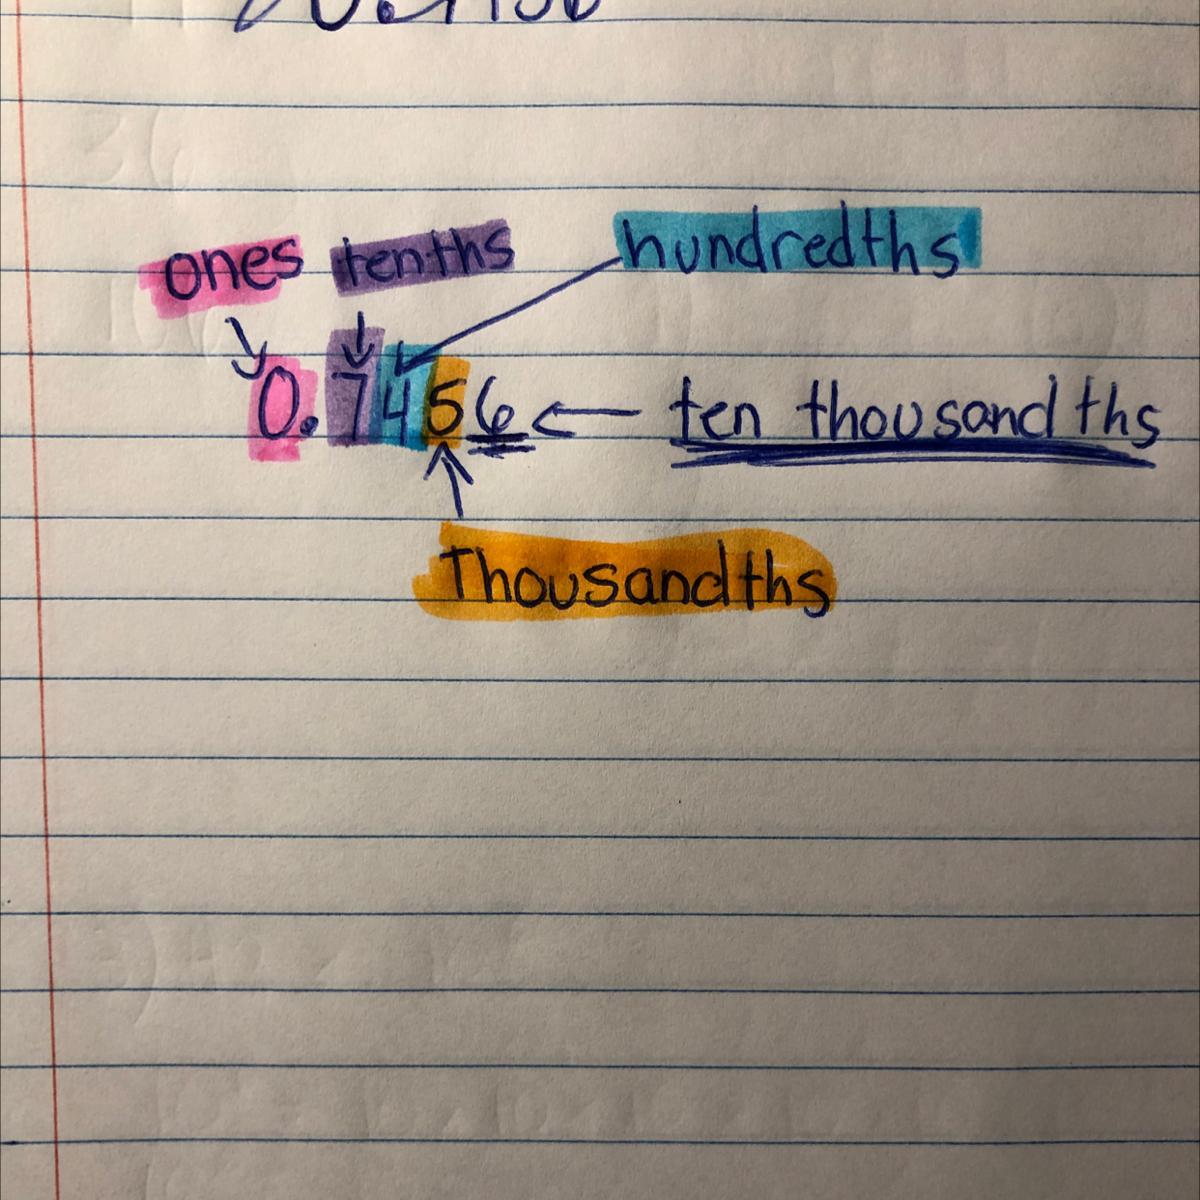 ones tenths hundredths
0.7456 ← ten thousandths
Thousandths